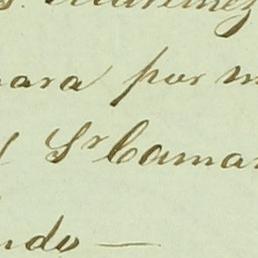 S. Martinez
para por m
Sr Camar
ndo —